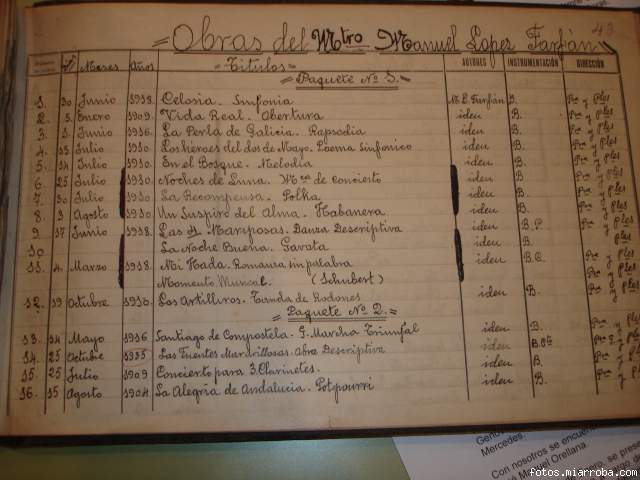 43
=Obras del Mtro Manuel Lopez Farfán=
Meses Años =Titulos= AUTORES INSTRUMENTACIÓN DIRECCIÓN
=Paquete Nº 1.=
1. 30 Junio 1918. Celosia. Sinfonia M. L. Farfán B. Pra y ples
2. 5. Enero 1909. Vida Real. Obertura idem B. Pra y ples
3. 5 Junio 1916. La Perla de Galicia. Rapsodia idem B. Pra y ples
4. 15 Julio 1910. Los héroes del dos de Mayo. Poema Sinfonico idem B. Pra y ples
5. 14 Julio 1910. En el Bosque. Melodia idem B. Pra y ples
6. 25 Julio 1910. Noches de Luna. Mca de Concierto idem B. Pra y ples
7. 30 Julio 1910. La Recompensa. Polka idem B. Pra y ples
8. 3 Agosto 1910. Un Suspiro del Alma. Habanera idem B. Pra y ples
9. 17 Junio 1918. Las Mariposas. Danza Descriptiva idem B.P. Pra y ples
10. La Noche Buena. Gavota idem B. Pra y ples
11. 4. Marzo 1918. Mi Hada. Romanza sin palabra idem Pra y ples
Momento Musical. (Schubert)
12. 19 Octubre 1910. Los Artilleros. Tanda de Rodones idem B. Pra y ples
=Paquete Nº 2.=
13. 14 Mayo 1916 Santiago de Compostela. G. Marcha Triunfal idem B. Pra y ples
14. 25 Octubre 1915 Las Fuentes Maravillosas. Obra Descriptiva idem Pra y ples
15. 25 Julio 1909 Concierto para 3 Clarinetes. idem B. Pra y ples
16. 15 Agosto 1904. La Alegria de Andalucia. Potpourri idem B. Pra y ples
Mercedes.
Con nosotros se encuen
Miguel Orellana
se pres
fotos.miarroba.com